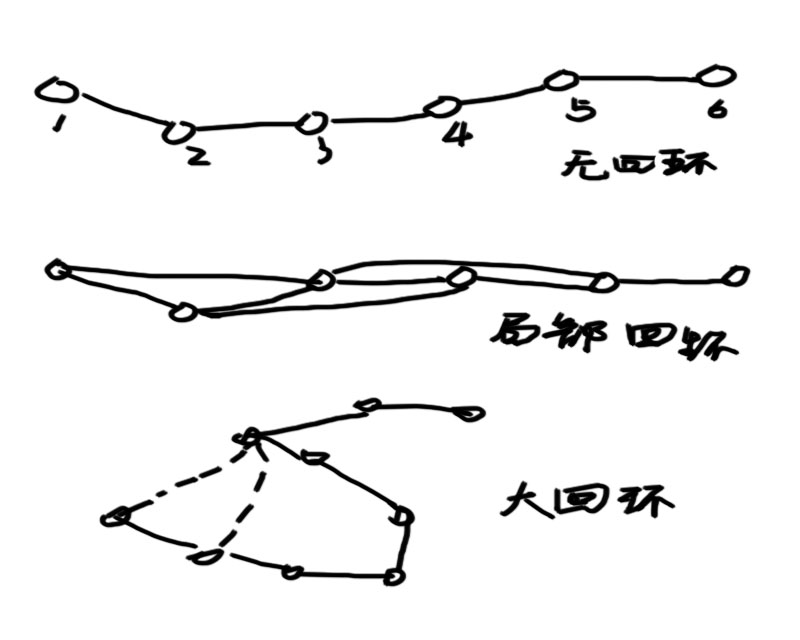 1 2 3 4 5 6
无回环
局部回环
大回环